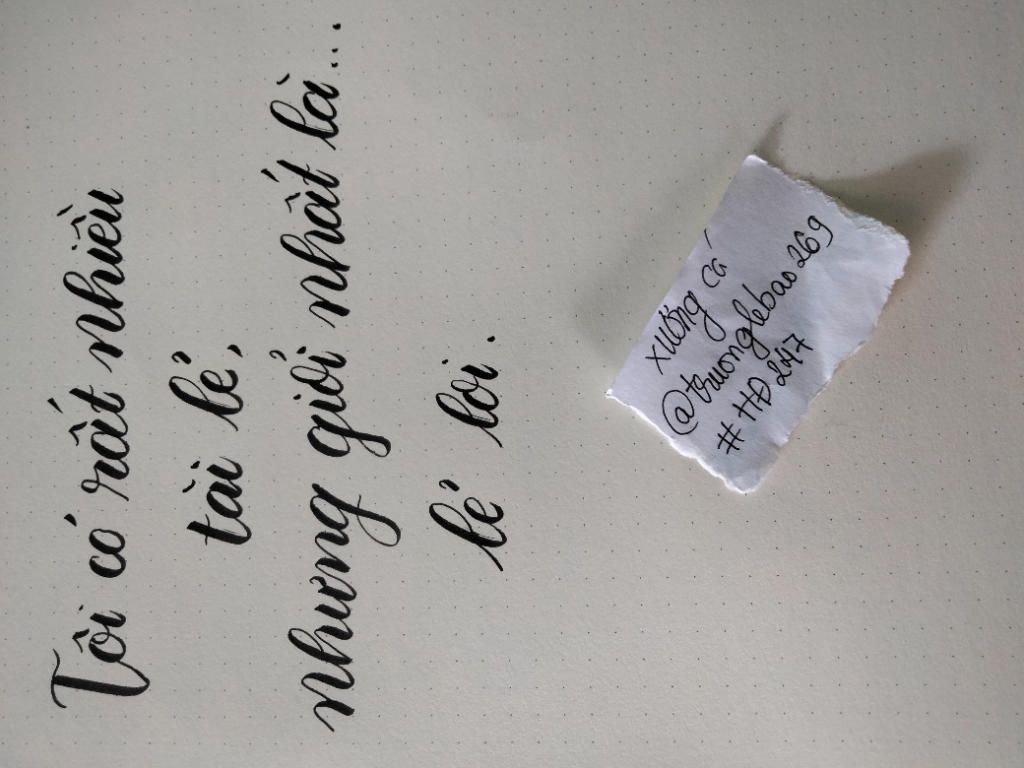 Tôi có rất nhiều
tài lẻ,
nhưng giỏi nhất là...
lẻ loi.
xưởng cá
@truonglebao269
#HĐ247